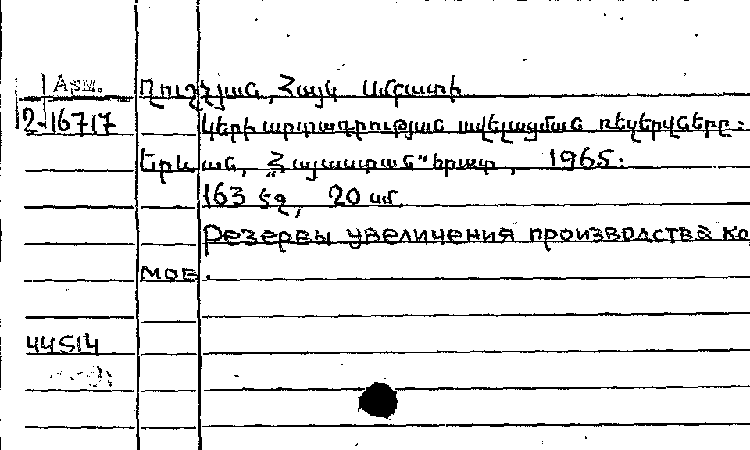 Арм.
Ղուշչյան, Հայկ Ամբատի
2-16717
կերի արտադրության ավելացման ռեզերվները:
Երևան, «Հայաստան» հրատ, 1965:
163 էջ, 20 սմ.
Резервы увеличения производства ко
мов.
44514